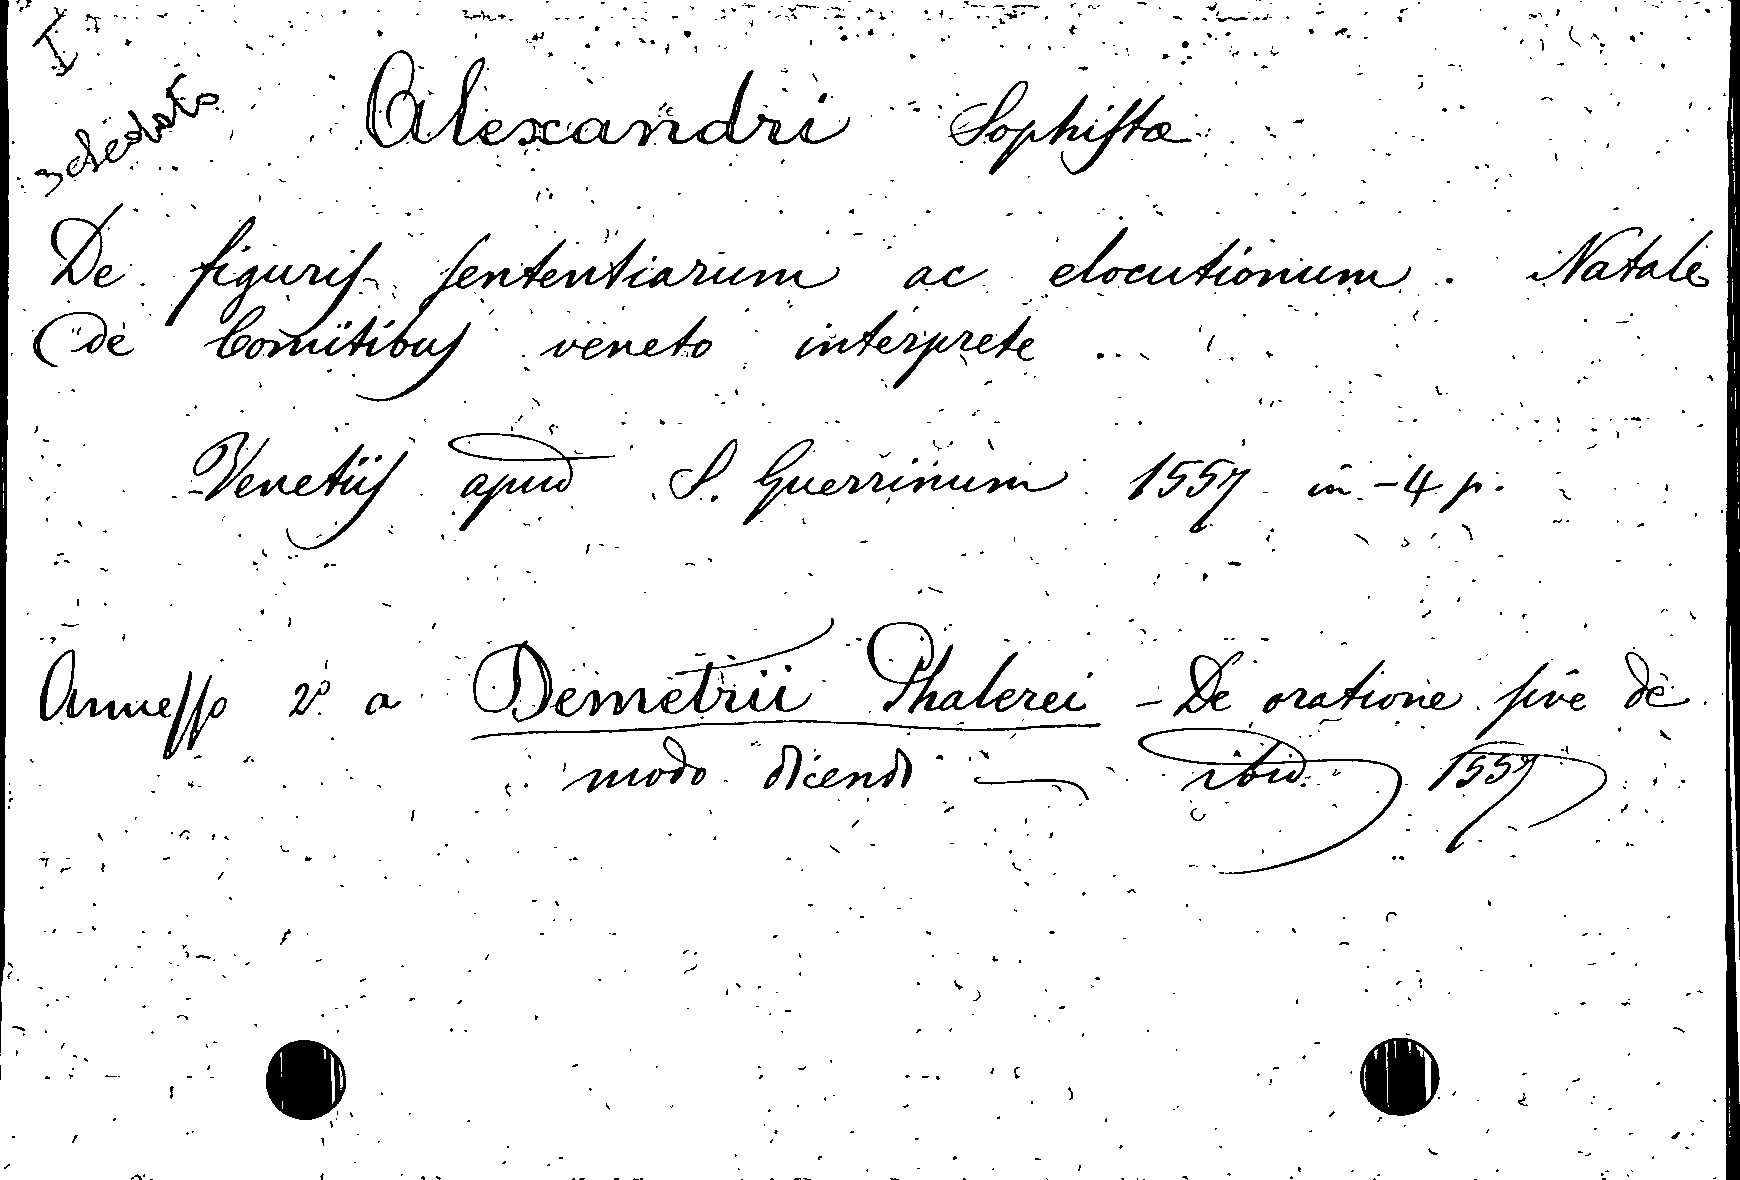 I
schedato
Alexandri Sophistæ
De figuris sententiarum ac elocutionum. Natale
de Comitibus veneto interprete ...
Venetiis apud S. Guerrinum 1557 in-4 p.
Annesso 2º a Demetrii Phalerei - De oratione sive de
modo dicendi — ibid. 1557